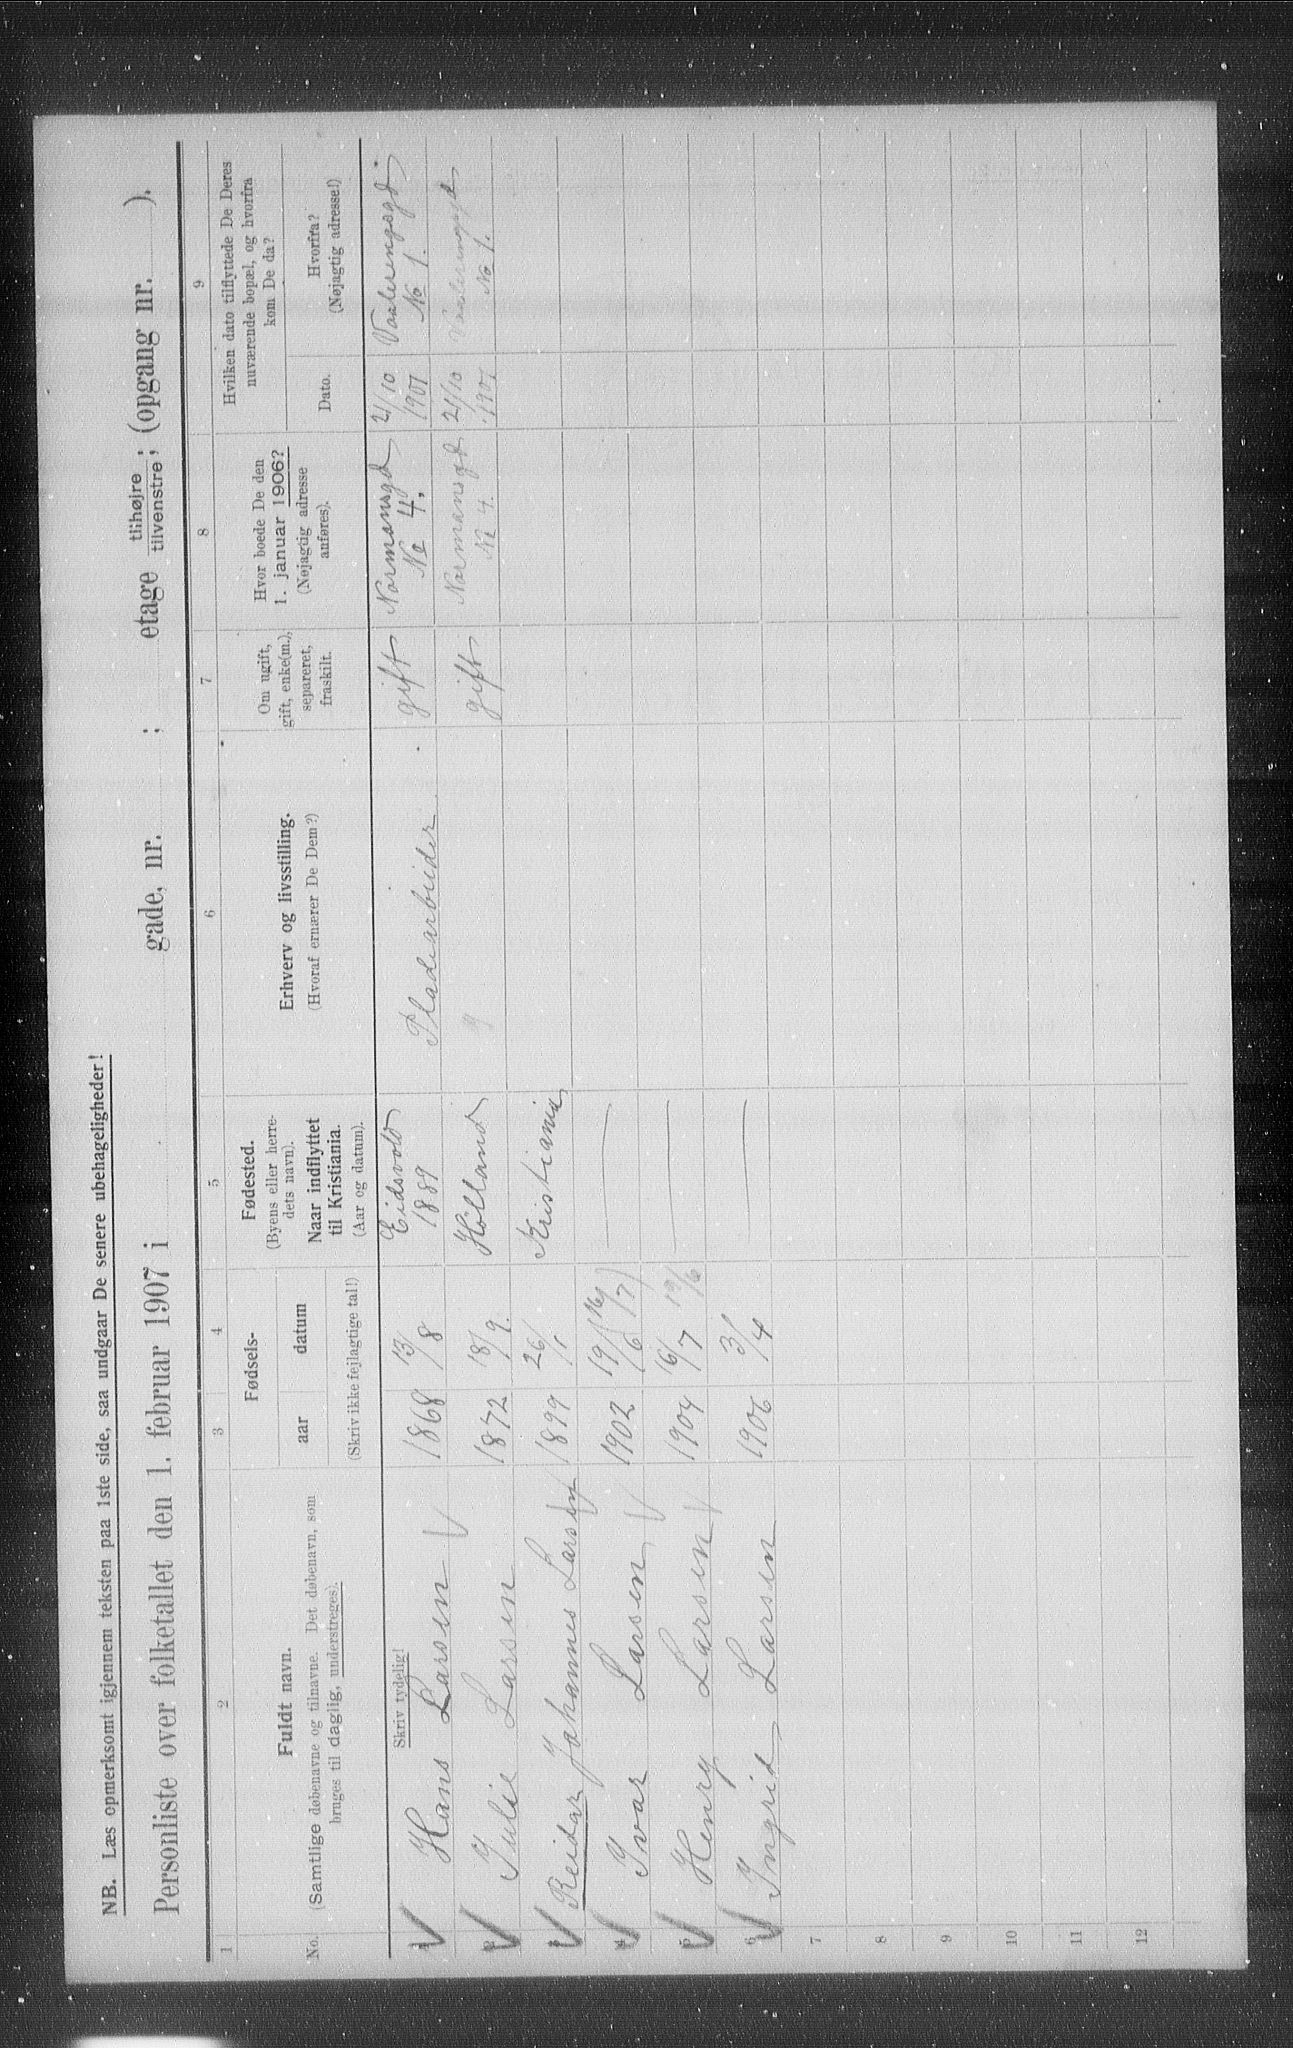 NB. Læs opmerksomt igjennem teksten paa 1ste side, saa undgaar De senere ubehageligheder!
Personliste over folketallet den 1. februar 1907 i gade, nr. ; etage tilhøjre ; tilvenstre, (opgang nr. ).
1 2 3 4 5 6 7 8 9
No.
Fuldt navn.
(Samtlige døbenavne og tilnavne. Det døbenavn, som
bruges til daglig, understreges).
Skriv tydelig!
Fødsels-
aar datum
(Skriv ikke fejlagtige tal!)
Fødested.
(Byens eller herre-
dets navn).
Naar indflyttet
til Kristiania.
(Aar og datum).
Erhverv og livsstilling.
(Hvoraf ernærer De Dem?)
Om ugift,
gift, enke(m.),
separeret,
fraskilt.
Hvor boede De den
1. januar 1906?
(Nøjagtig adresse
anføres).
Hvilken dato tilflyttede De Deres
nuværende bopæl, og hvorfra
kom De da?
Dato.
Hvorfra?
(Nøjagtig adresse!)
Hans Larsen 1868 13/8 Eidsvold 1889 Pladearbeider gift Normansgd No 4. 21/10 1901 Vaalerengsgd No 1.
Julie Larsen 1872 18/9. Hølland gift Normansgd No 4. 21/10 1901 Vaalerengsgd No 1.
Reidar Johannes Larsen 1899 26/1 Kristiania
4 Ivar Larsen 1902 19/6 (16/7) —
Henry Larsen 1904 16/7 19/6 —
6 Ingrid Larsen 1906 3/4 —
7
8
9
10
11
12